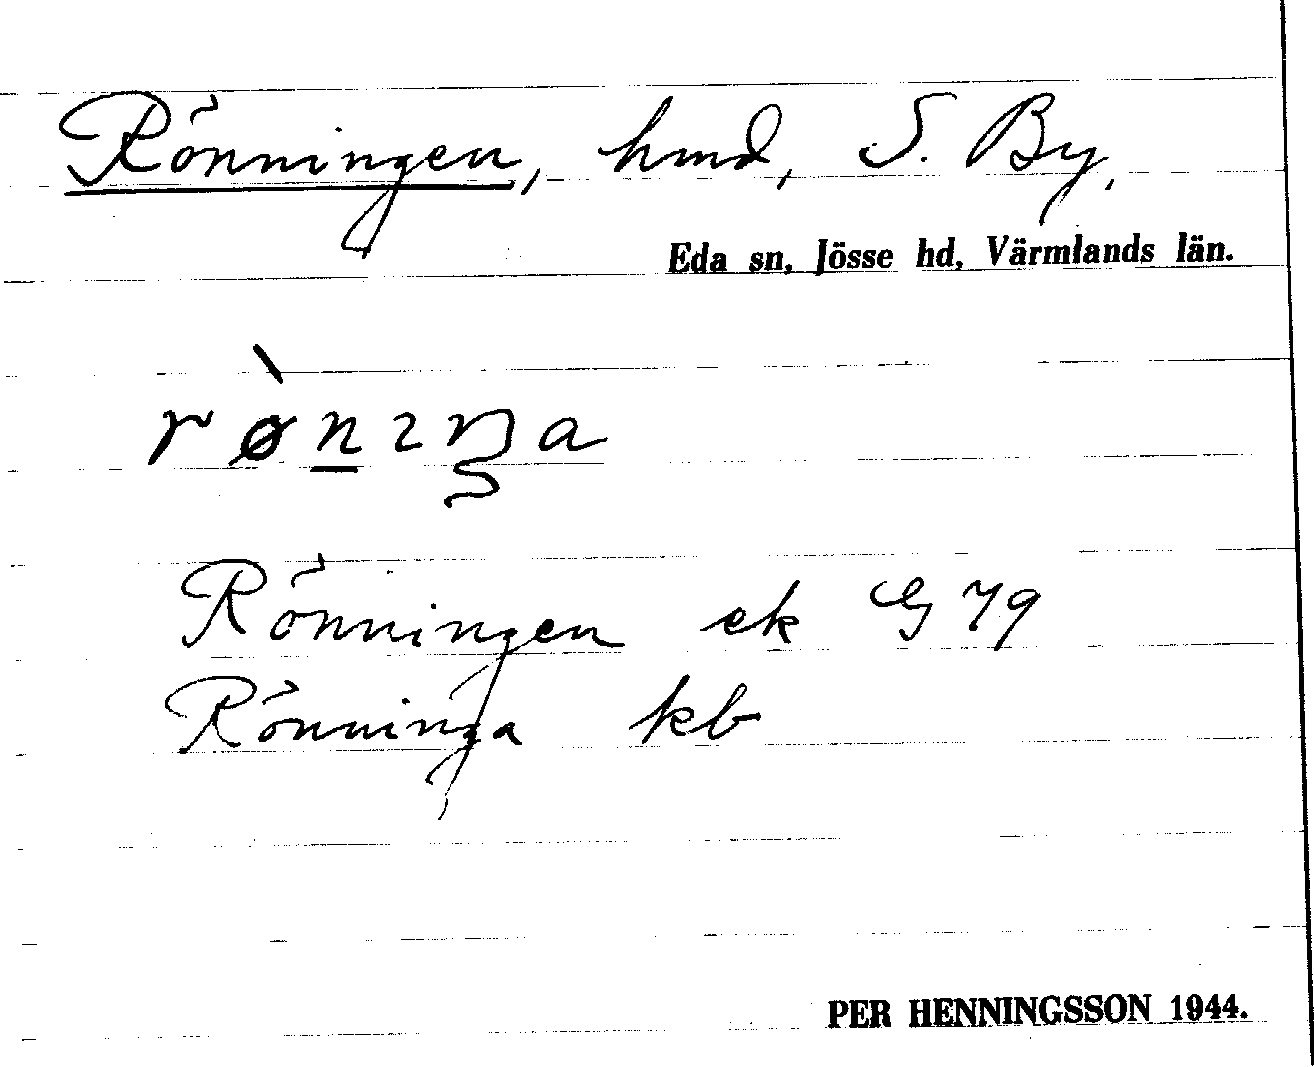 Rönningen, hmd, S. By,
Eda sn, Jösse hd, Värmlands län.
rø̀nıŋa
Rönningen ek G 79
Rönninga kb
PER HENNINGSSON 1944.